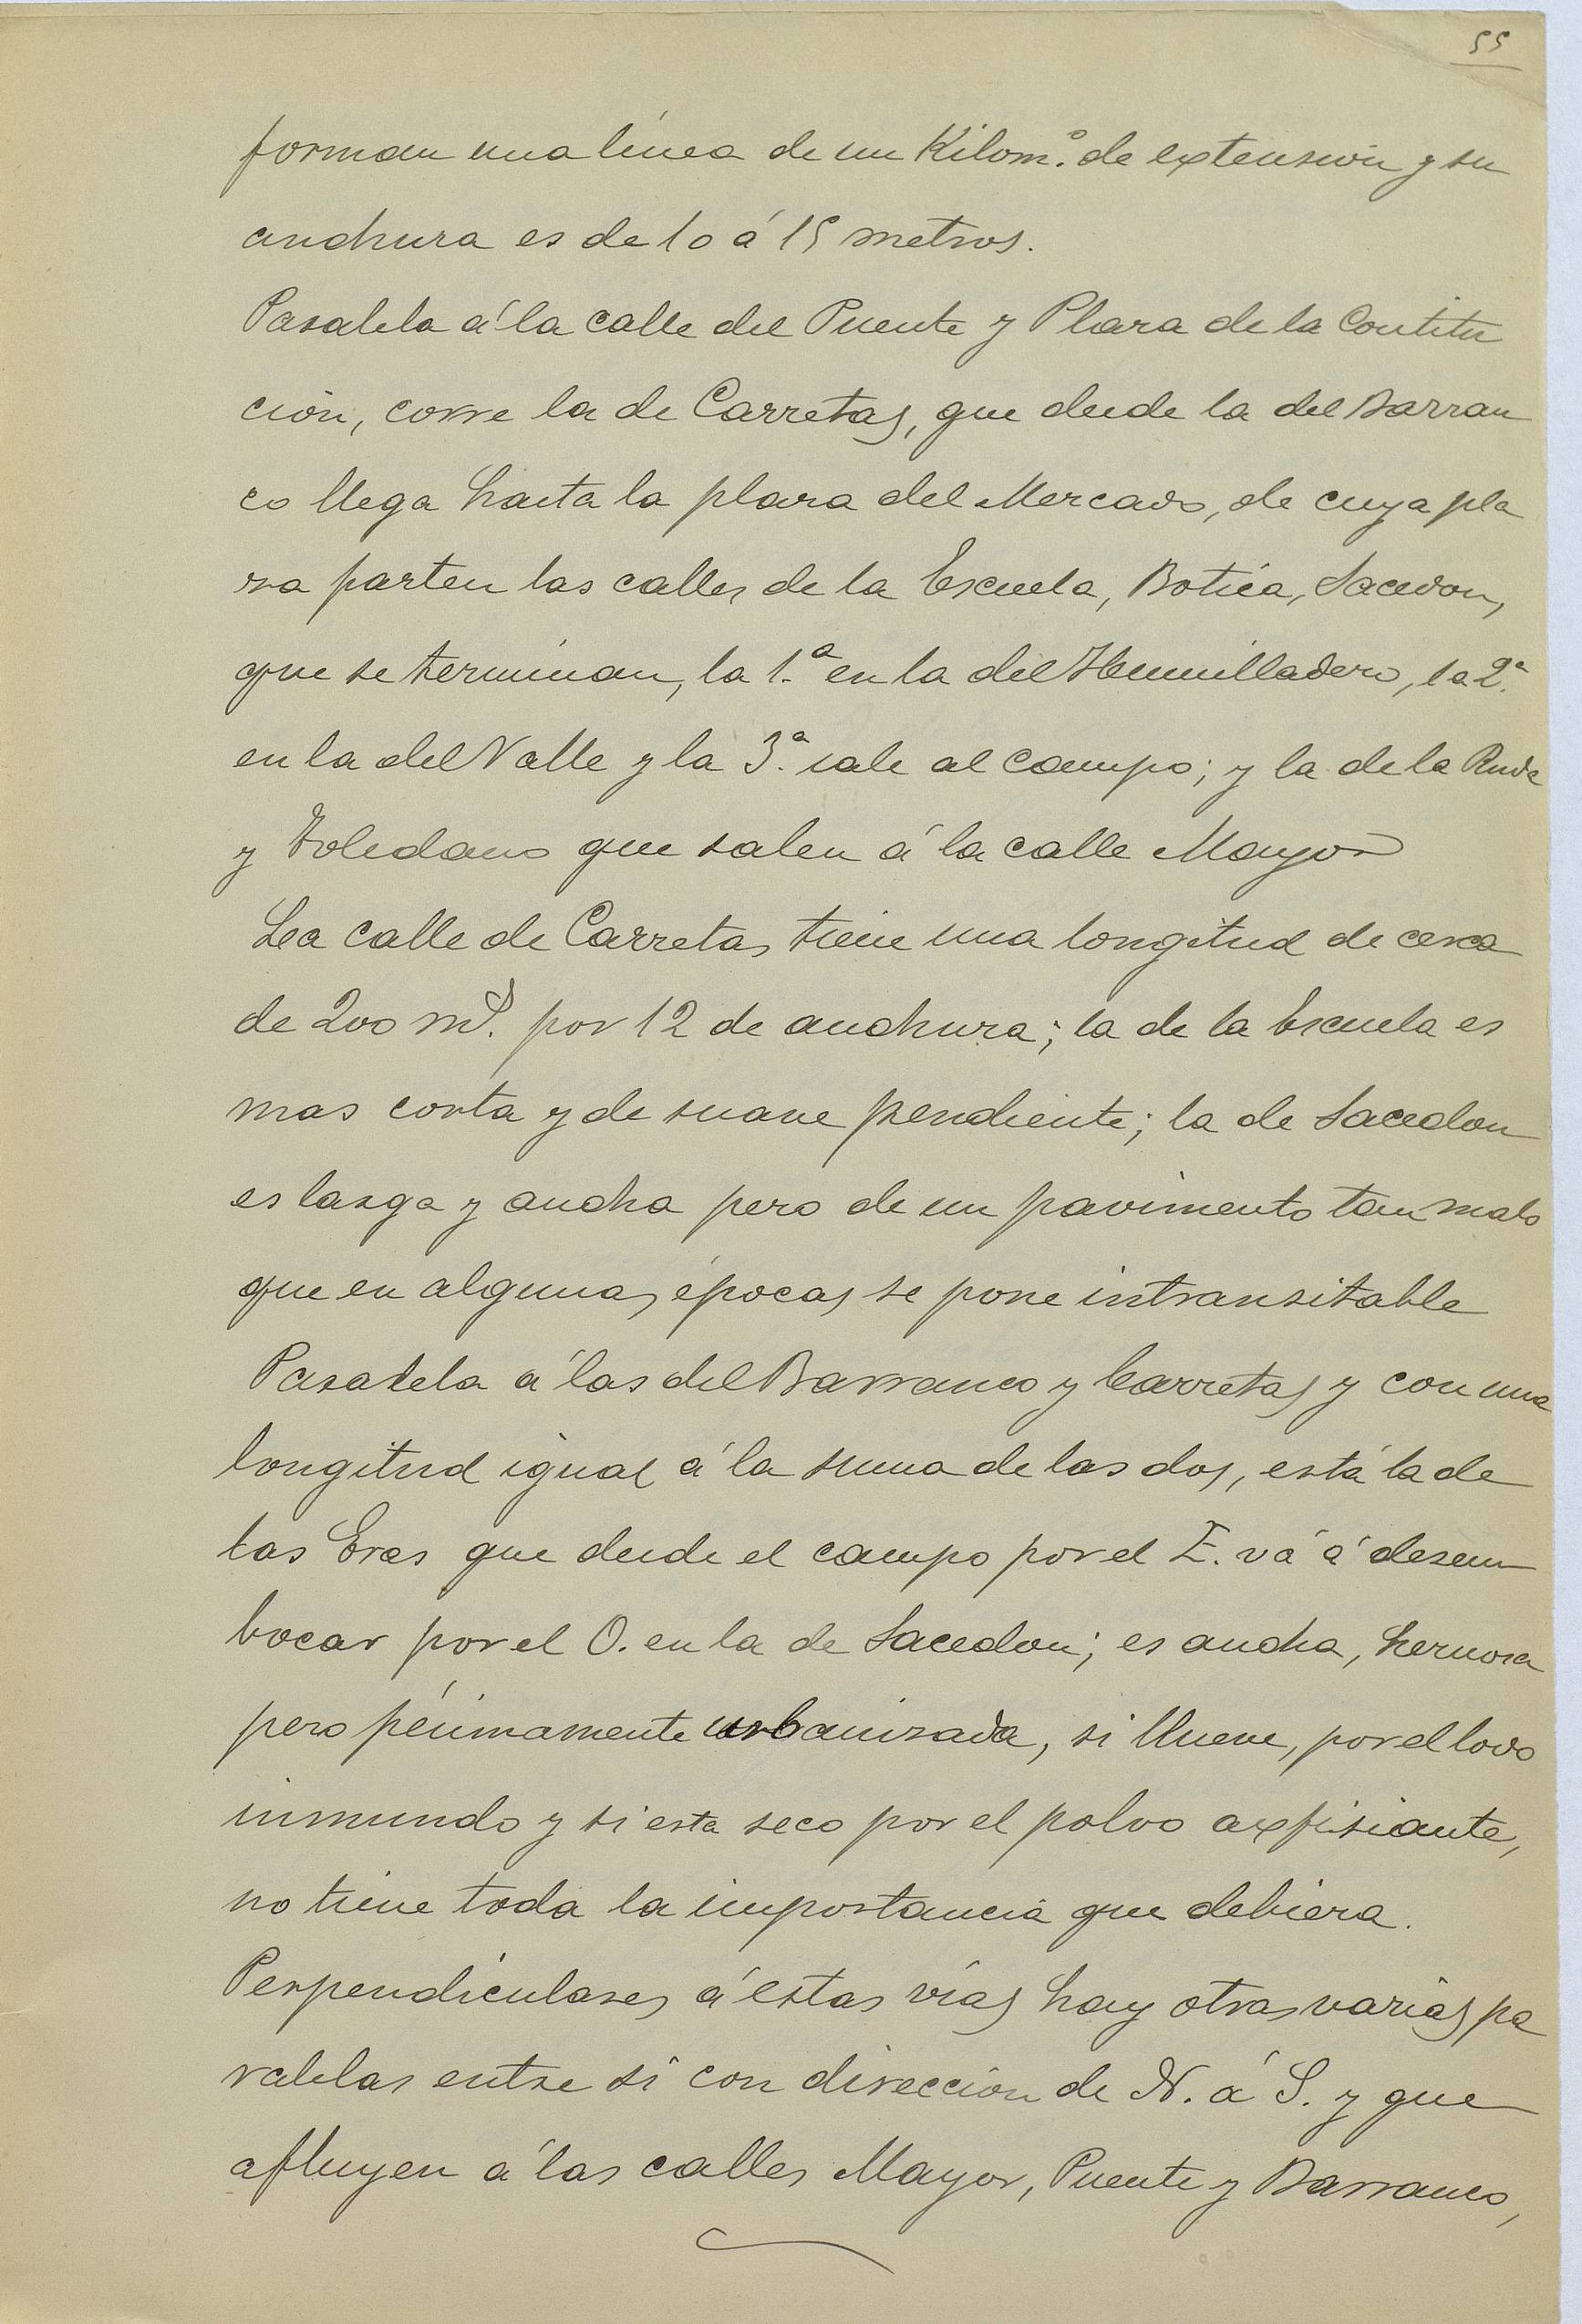 55
forman una línea de un Kilom.º de extension y su
anchura es de 10 á 15 metros.
Paralela á la calle del Puente y Plaza de la Contitu
ción, corre la de Carretas, que desde la del Barran
co llega hasta la plaza del Mercado, de cuya pla
za parten las calles de la Escuela, Botica, Sacedon,
que se terminan, la 1.ª en la del Humilladero, la 2.ª
en la del Valle y la 3.ª sale al campo; y la de la Ruda
y Toledano que salen á la calle Mayor
La calle de Carretas tiene una longitud de cerca
de 200 m.s por 12 de anchura; la de la Escuela es
mas corta y de suave pendiente; la de Sacedon
es larga y ancha pero de un pavimento tan malo
que en algunas épocas se pone intransitable
Paralela á las del Barranco y Carretas y con una
longitud igual á la suma de las dos, está la de
las Eras que desde el campo por el E. vá á desem
bocar por el O. en la de Sacedon; es ancha, hermosa
pero pésimamente urbanizada, si llueve, por el lodo
inmundo y si esta seco por el polvo axfisiante,
no tiene toda la importancia que debiera.
Perpendiculares á estas vías hay otras varias pa
ralelas entre sí con direccion de N. á S. y que
afluyen á las calles Mayor, Puente y Barranco,